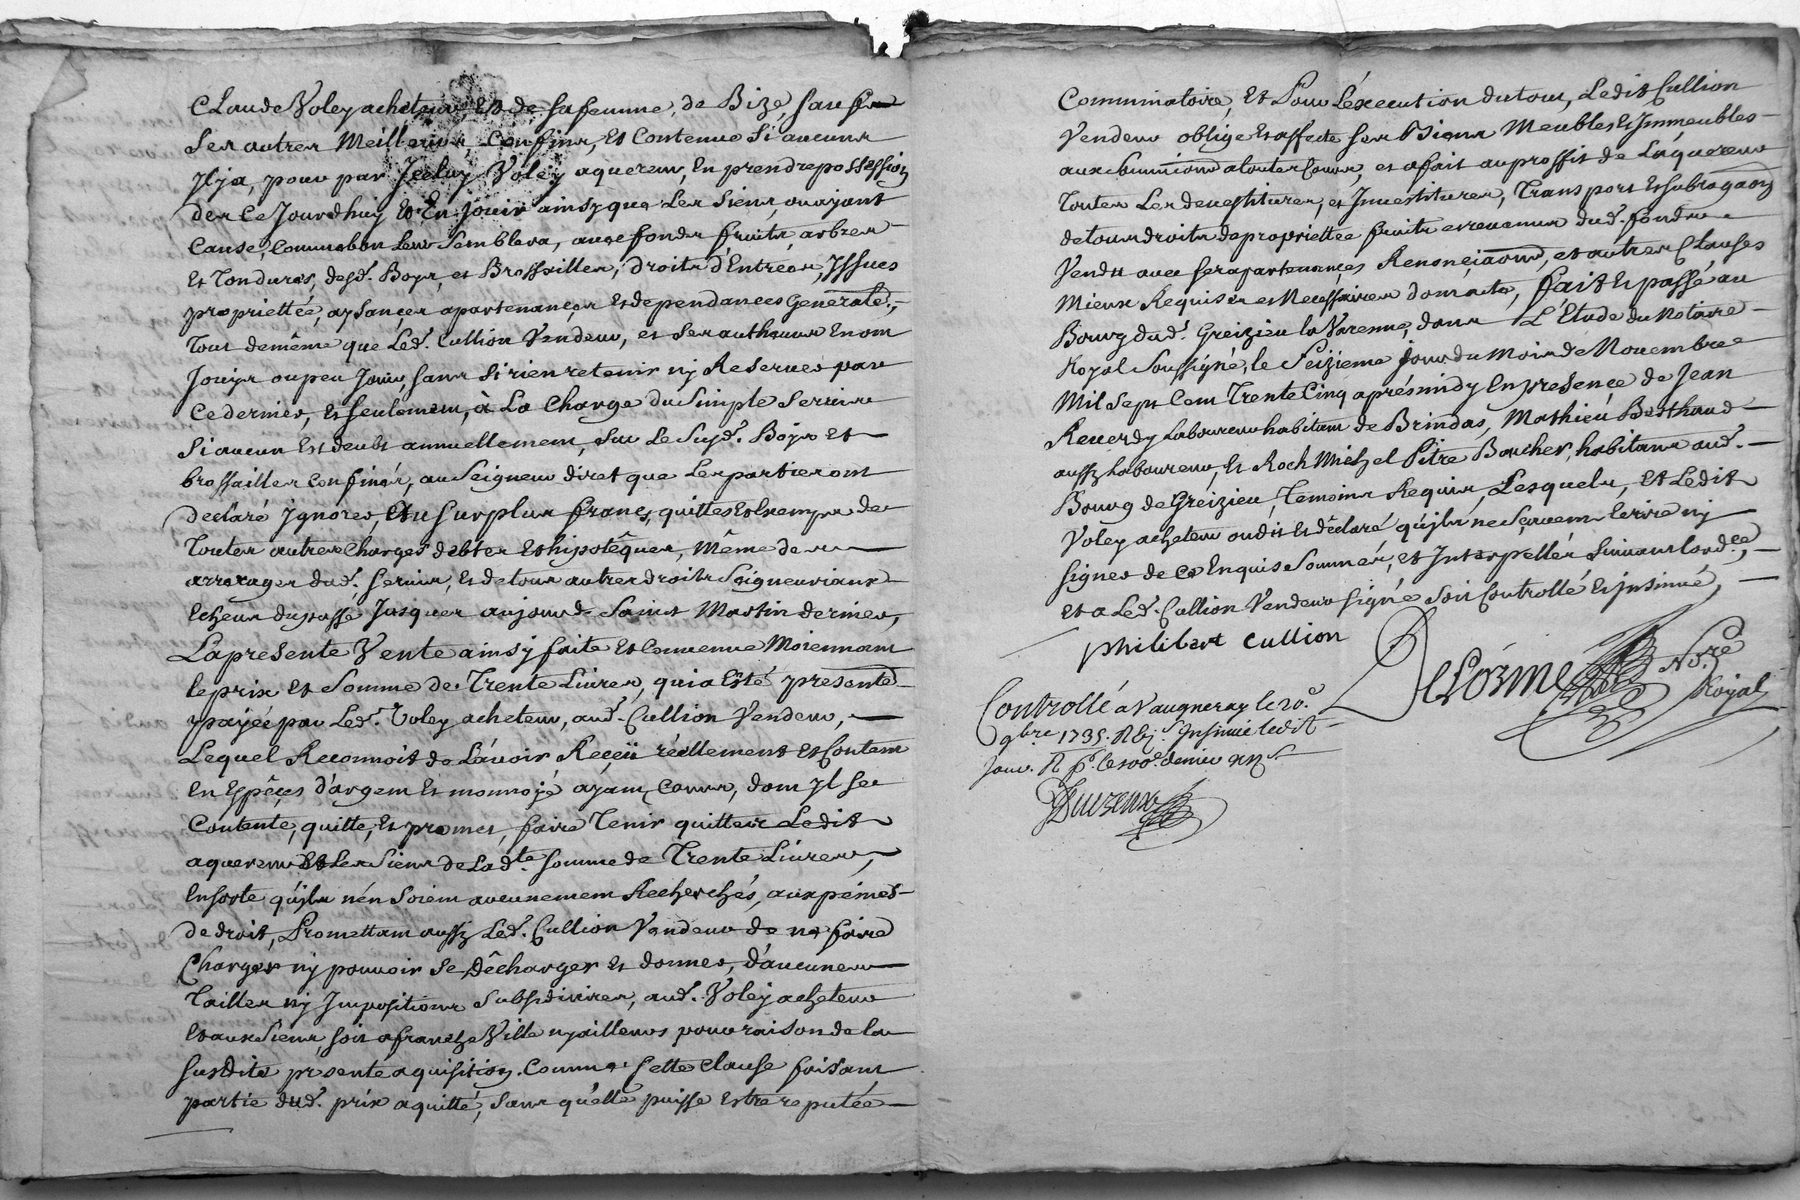 Claude Voley acheteur, Et de sa femme, de Bize, sauf
Ses autres Meilleurs Confins, Et Contenue Si aucuns
Jl ja, pour par Jceluy Voley aquereur, En prendre possession
des Ce Jourdhuy Et En Jouir ainsy que Les Siens, ou ayant
Cause, Comme bon Leur Semblera, avec fonds fruits, arbres
Et Tondures, desd. Boys, et Brossailles, droits d'Entrées, Jssues
propriettée, aysances apartenances Et dependances Generale.
Tout de même que Led. Cullion Vendeur, et Ses autheurs En ont
Jouys ou peu Jouir sans Si rien retenir ny Reserver par
Ce dernier, Et seulement, à La Charge du Simple Servis
Si aucun Est deubt annuellement, Sur Le Susd. Boys et
brossailles Confinés, au Seigneur diret que Les parties ont
declaré Jgnorer, Et au Surplus franc, quittes Et Exempts de
Toutes autres Charges debtes Et hipotêques, Même des
arrerages dud. Servis, Et de tous autres droits Seigneuriaux
Echeus du passé Jusques aujourd Saint Martin dernier,
La presente Vente ainsy faite Et Convenue Moiennant
le prix Et Somme de Trente Livres, qui a Esté presente.
payée par Led. Voley acheteur, aud. Cullion Vendeur,
Lequel Reconnoit de L'avoir Reçeü réellement Et Contant
En Espêçes d'argent Et monnoyé ayant, Cours, dont Jl Se
Contente, quitte, Et promet, faire Tenir quitteir Ledit
aquereur Et Les Siens de Lad.te Somme de Trente Livres,
Ensorte qu'jls n'en Soient aucunement Recherchés, aux peines
de droit, Promettant aussy Led. Cullion Vendeur de ne faire
Charger ny pouvoir Se Dêcharger Et donner, d'aucunes
Tailles ny Jmpositions Subsidivires, aud. Voley acheteur
Et aux Siens, soit a franche Ville ny ailleurs pour raison de la
susdite presente aquisition. Comme Cette Clause faisant
partie dud. prix aquitté, Sans qu'elle puisse Estre reputée
Comminatoire, Et Pour L'éxecution du tout, Ledit Cullion
Vendeur oblige Et affecte ses Biens Meubles Et Jmmeubles
aux Soumissions a toutes Cours, et a fait au proffit de L'aquereur
Toutes Les devestitures, et Jnvestitures, Transport Et Subrogaon
de tous droits de propriettée fruits et revenus dud. fonds
Vendu avec ses apartenances Renonciaons, et autres Clauses
Mieux Requises et Necessaires dont acte, fait Et passé au
Bourg dud. Greizieu la Varenne, dans L'Etude du Notaire
Royal Soussigné, le Seizieme jour du Mois de Novembre
Mil Sept Cent Trente Cinq aprés midy En presençe de Jean
Reverdy Laboureur habitant de Brindas, Mathieu Berthaud
aussy Laboureur, Et Roch Michel Pitre Boucher, habitans aud.
Bourg de Greizieu, Temoins Requis, Lesquels, Et Ledit
Voley acheteur ondit Et dêclaré qu'jls ne Sçavent Ecrire ny
signer de Ce Enquis Sommés, et Jnterpellés Suivant Lord.ce,
et a Led. Cullion Vendeur signé Soit Controllé Et jnsinué,
philibert cullion
DeLorme Nore.
Royal
Controllé a Vaugneray le 20.
9bre 1735. R Insinué ledit
jour.